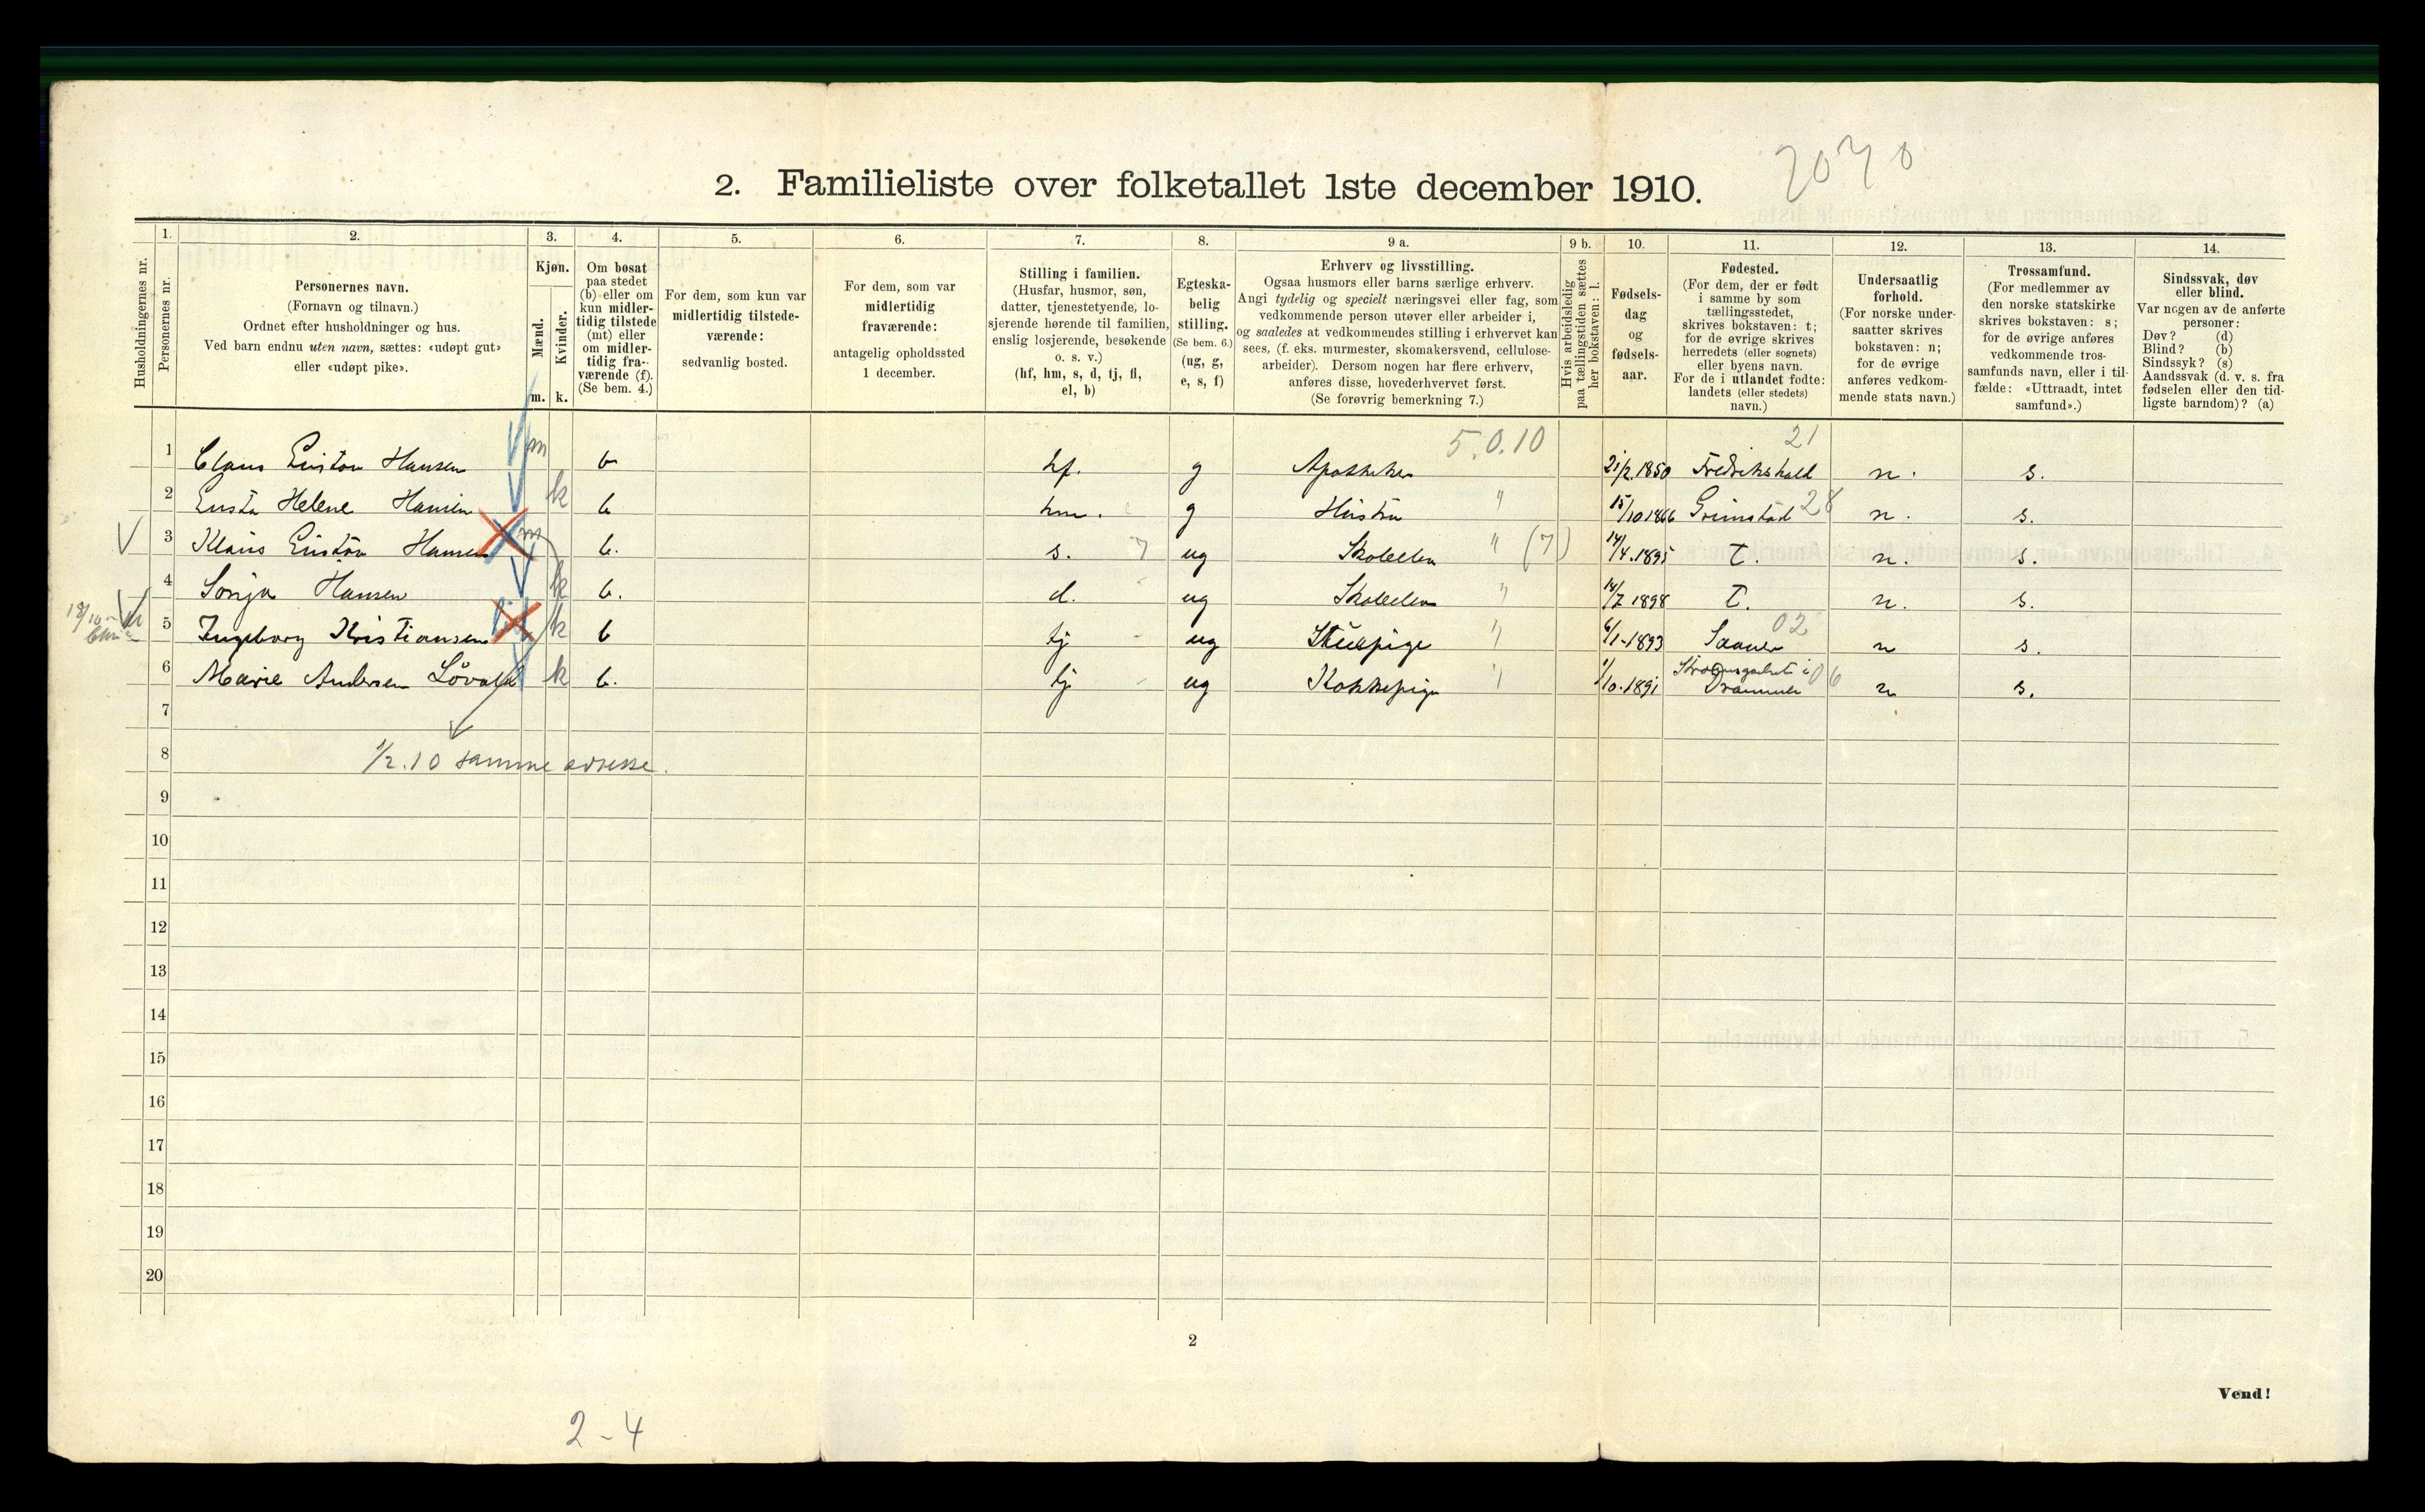 2070
2. Familieliste over folketallet 1ste december 1910.
Husholdningernes nr.
1.
Personernes nr.
2.
Personernes navn.
(Fornavn og tilnavn.)
Ordnet efter husholdninger og hus.
Ved barn endnu uten navn, sættes: «udøpt gut»
eller «udøpt pike».
3.
Kjøn.
Mænd.
Kvinder.
m. k.
4.
Om bosat
paa stedet
(b) eller om
kun midler-
tidig tilstede
(mt) eller
om midler-
tidig fra-
værende (f).
(Se bem. 4.)
5.
For dem, som kun var
midlertidig tilstede-
værende:
sedvanlig bosted.
6.
For dem, som var
midlertidig
fraværende:
antagelig opholdssted
1 december.
7.
Stilling i familien.
(Husfar, husmor, søn,
datter, tjenestetyende, lo-
sjerende hørende til familien,
enslig losjerende, besøkende
o. s. v.)
(hf, hm, s, d, tj, fl,
el, b)
8.
Egteska-
belig
stilling.
(Se bem. 6.)
(ug, g,
e, s, f)
9 a.
Erhverv og livsstilling.
Ogsaa husmors eller barns særlige erhverv.
Angi tydelig og specielt næringsvei eller fag, som
vedkommende person utøver eller arbeider i,
og saaledes at vedkommendes stilling i erhvervet kan
sees, (f. eks. murmester, skomakersvend, cellulose-
arbeider). Dersom nogen har flere erhverv,
anføres disse, hovederhvervet først.
(Se forøvrig bemerkning 7.)
9 b.
Hvis arbeidsledig
paa tællingstiden sættes
her bokstaven: l.
10.
Fødsels-
dag
og
fødsels-
aar.
11.
Fødested.
(For dem, der er født
i samme by som
tællingsstedet,
skrives bokstaven: t;
for de øvrige skrives
herredets (eller sognets)
eller byens navn.
For de i utlandet fødte:
landets (eller stedets)
navn.)
12.
Undersaatlig
forhold.
(For norske under-
saatter skrives
bokstaven: n;
for de øvrige
anføres vedkom-
mende stats navn.)
13.
Trossamfund.
(For medlemmer av
den norske statskirke
skrives bokstaven: s;
for de øvrige anføres
vedkommende tros-
samfunds navn, eller i til-
fælde: «Uttraadt, intet
samfund».)
14.
Sindssvak, døv
eller blind.
Var nogen av de anførte
personer:
Døv? (d)
Blind? (b)
Sindssyk? (s)
Aandssvak (d. v. s. fra
fødselen eller den tid-
ligste barndom)? (a)
1 Claus Huston Hansen m b hf. g Apotheker 5.0.10 21/2.1850 Fredrikshald 21 n. s.
2 Helene Hansen k b hm. g Hustru " 15/10 1866 Grimstad 28 n. s.
3 Klaus Hansen m b. s. 7 ug Skoleelev " (7) 14/4.1895 t. n. s.
4 Sonja Hansen k b. d. ug Skoleelev " 14/7 1898 t. n. s.
18/10
5 Ingeborg Kristiansen k b tj - ug Stuepige " 6/1-1893 02 n s.
6 Marie Andersen Løvald k b. tj - ug Kokkepige " 1/10.1891 Strømsgodset i Drammen 06 n s.
7
8 1/2.10 samme adresse.
9
10
11
12
13
14
15
16
17
18
19
20
2
Vend!
2-4